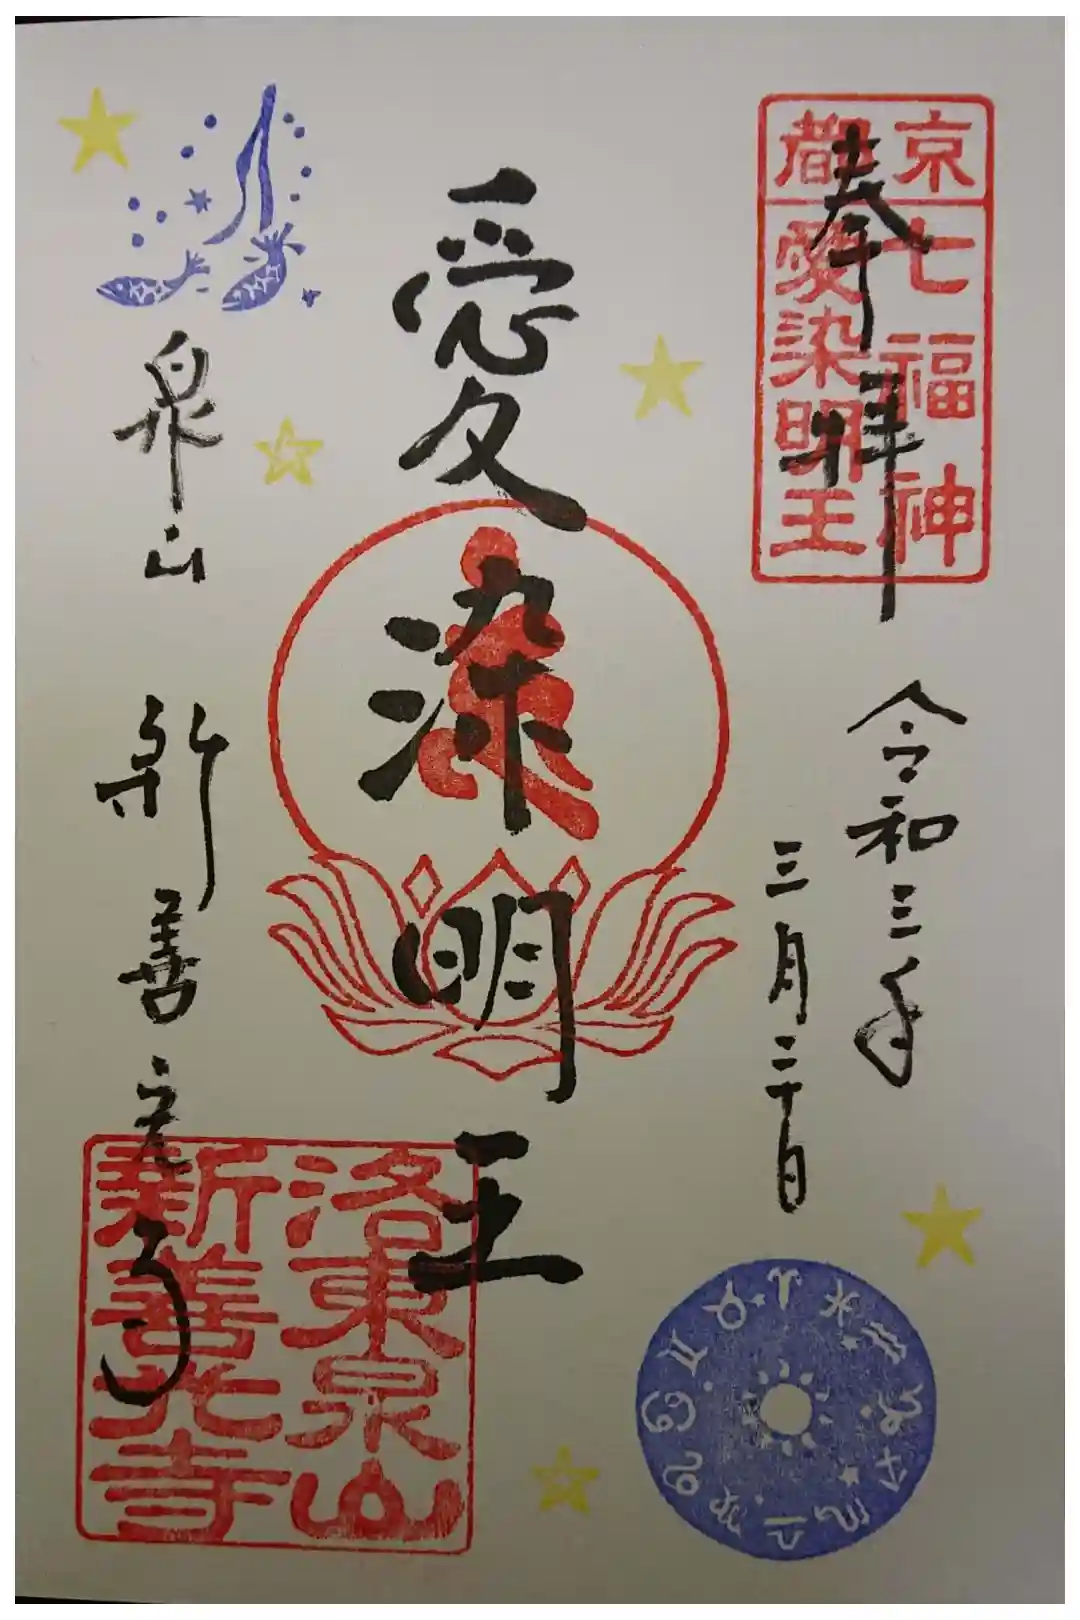 奉拝
京都
七福神
愛染明王
令和三年
三月二十日
愛染明王
泉山 新善光寺
洛東泉山
新善光寺